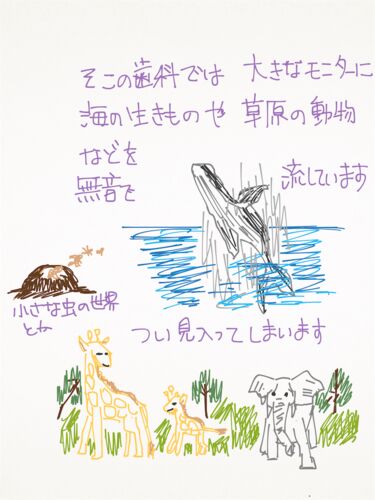 そこの歯科では 大きなモニターに
海の生きものや 草原の動物
などを
無音で 流しています
小さな虫の世界
とか
つい見入ってしまいます